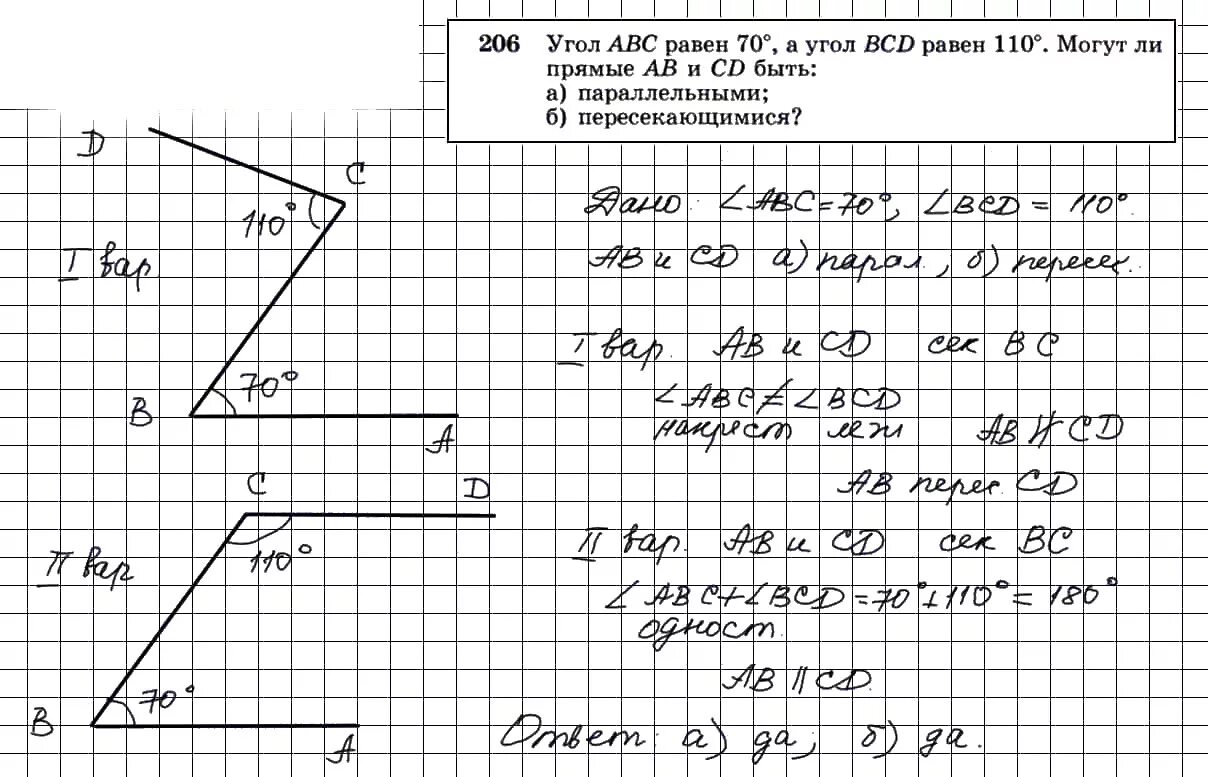 206 Угол ABC равен 70°, а угол BCD равен 110°. Могут ли
прямые AB и CD быть:
а) параллельными;
б) пересекающимися?
D
C
110°
I вар.
70°
B
A
Дано: ∠ABC = 70°, ∠BCD = 110°.
AB и CD а) парал., б) пересек.
I вар. AB и CD сек BC
∠ABC ≠ ∠BCD
накрест леж AB ∦ CD
AB перес. CD
C D
II вар
110°
70°
B
A
II вар. AB и CD сек BC
∠ABC + ∠BCD = 70° + 110° = 180°
одност.
AB ∥ CD.
Ответ: а) да; б) да.